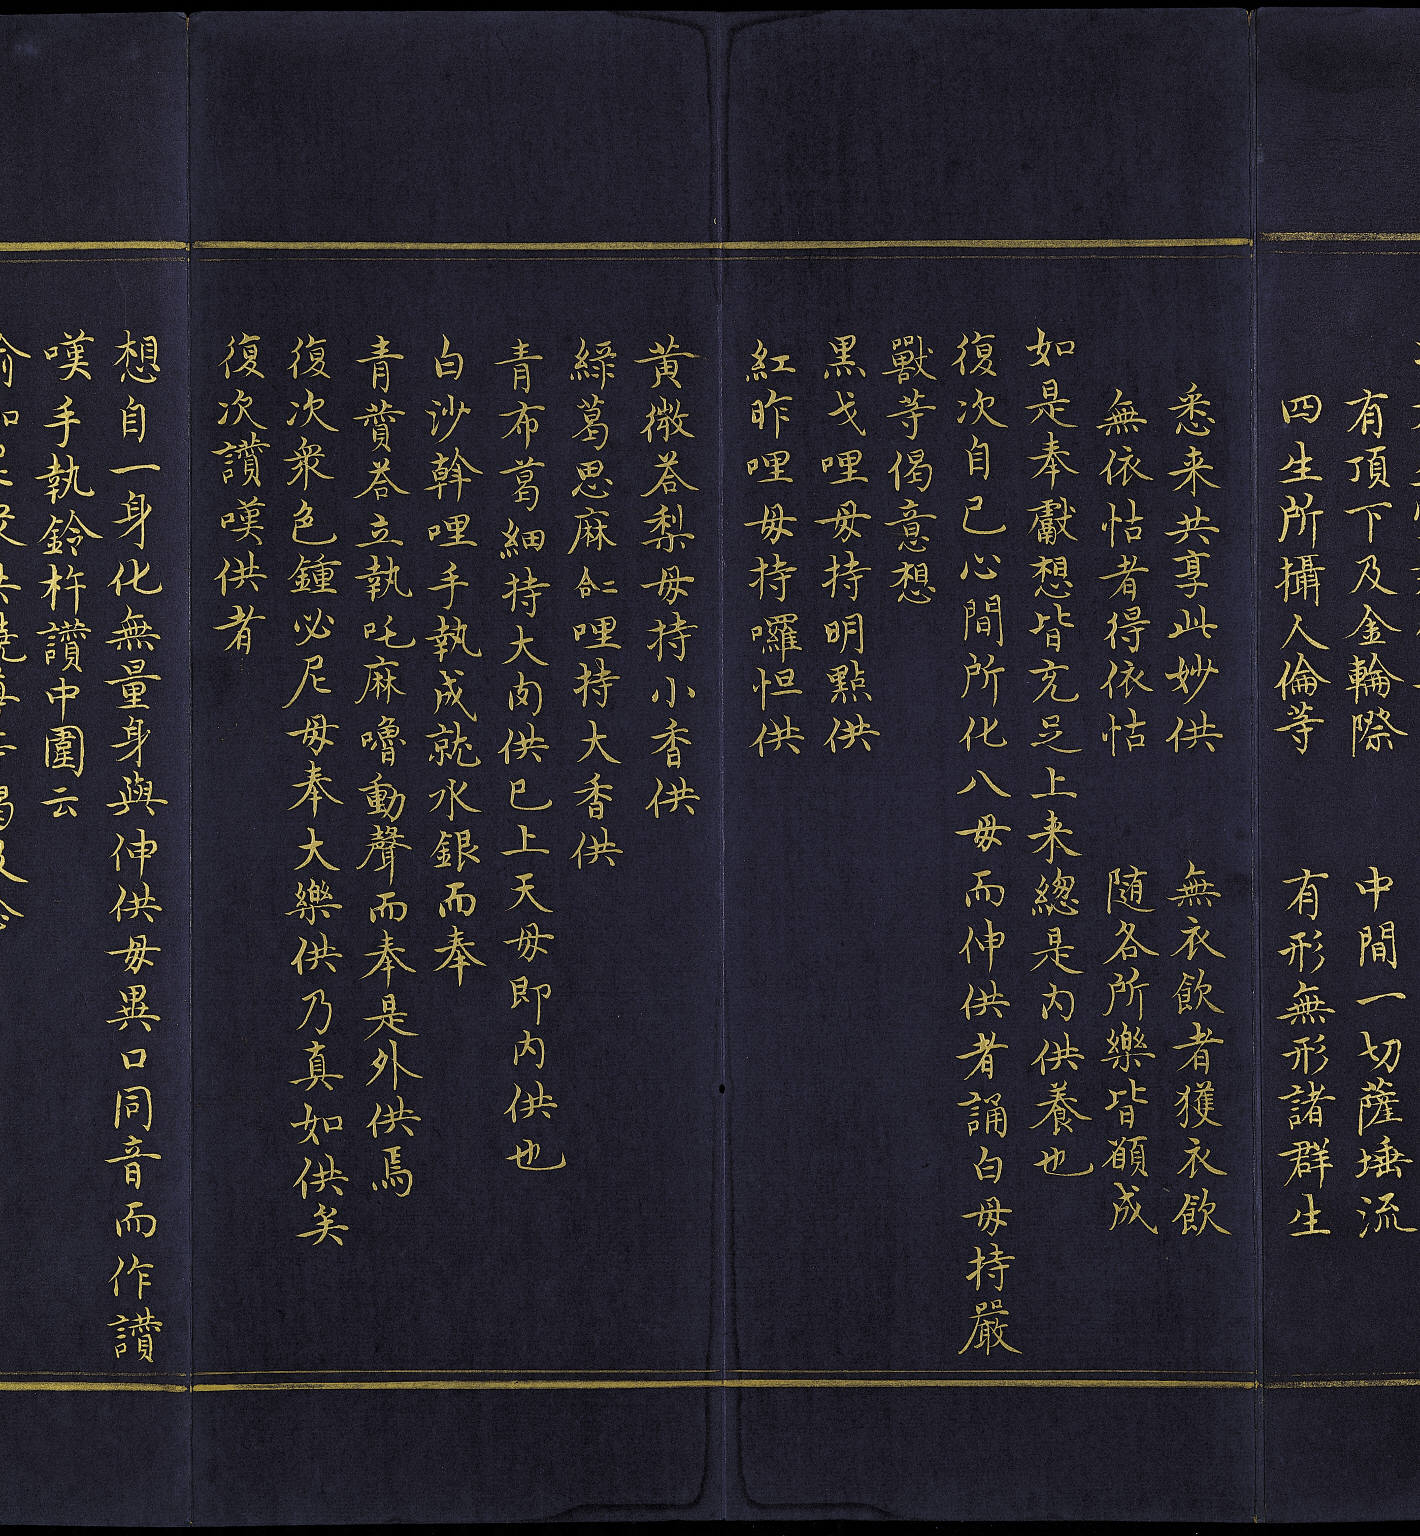 有頂下及金輪際　中間一切薩埵流
四生所攝人倫等　有形無形諸群生
悉来共享此妙供　無衣飲者獲衣飲
無依怙者得依怙　随各所樂皆願成
如是奉獻想皆充足上来緫是内供養也
復次自己心間所化八毋而伸供者誦白毋持嚴
獸等偈意想
黒戈哩毋持明點供
紅昨哩毋持囉怛供
黄微荅梨毋持小香供
緑葛思麻哩持大香供
青布葛細持大肉供已上天毋即内供也
白沙斡哩手執成就水銀而奉
青賛荅立執吒麻嚕動聲而奉是外供焉
復次衆色鍾必尼毋奉大樂供乃真如供矣
復次讃嘆供者
想自一身化無量身與伸供毋異口同音而作讃
嘆手執鈴杵讃中圍云